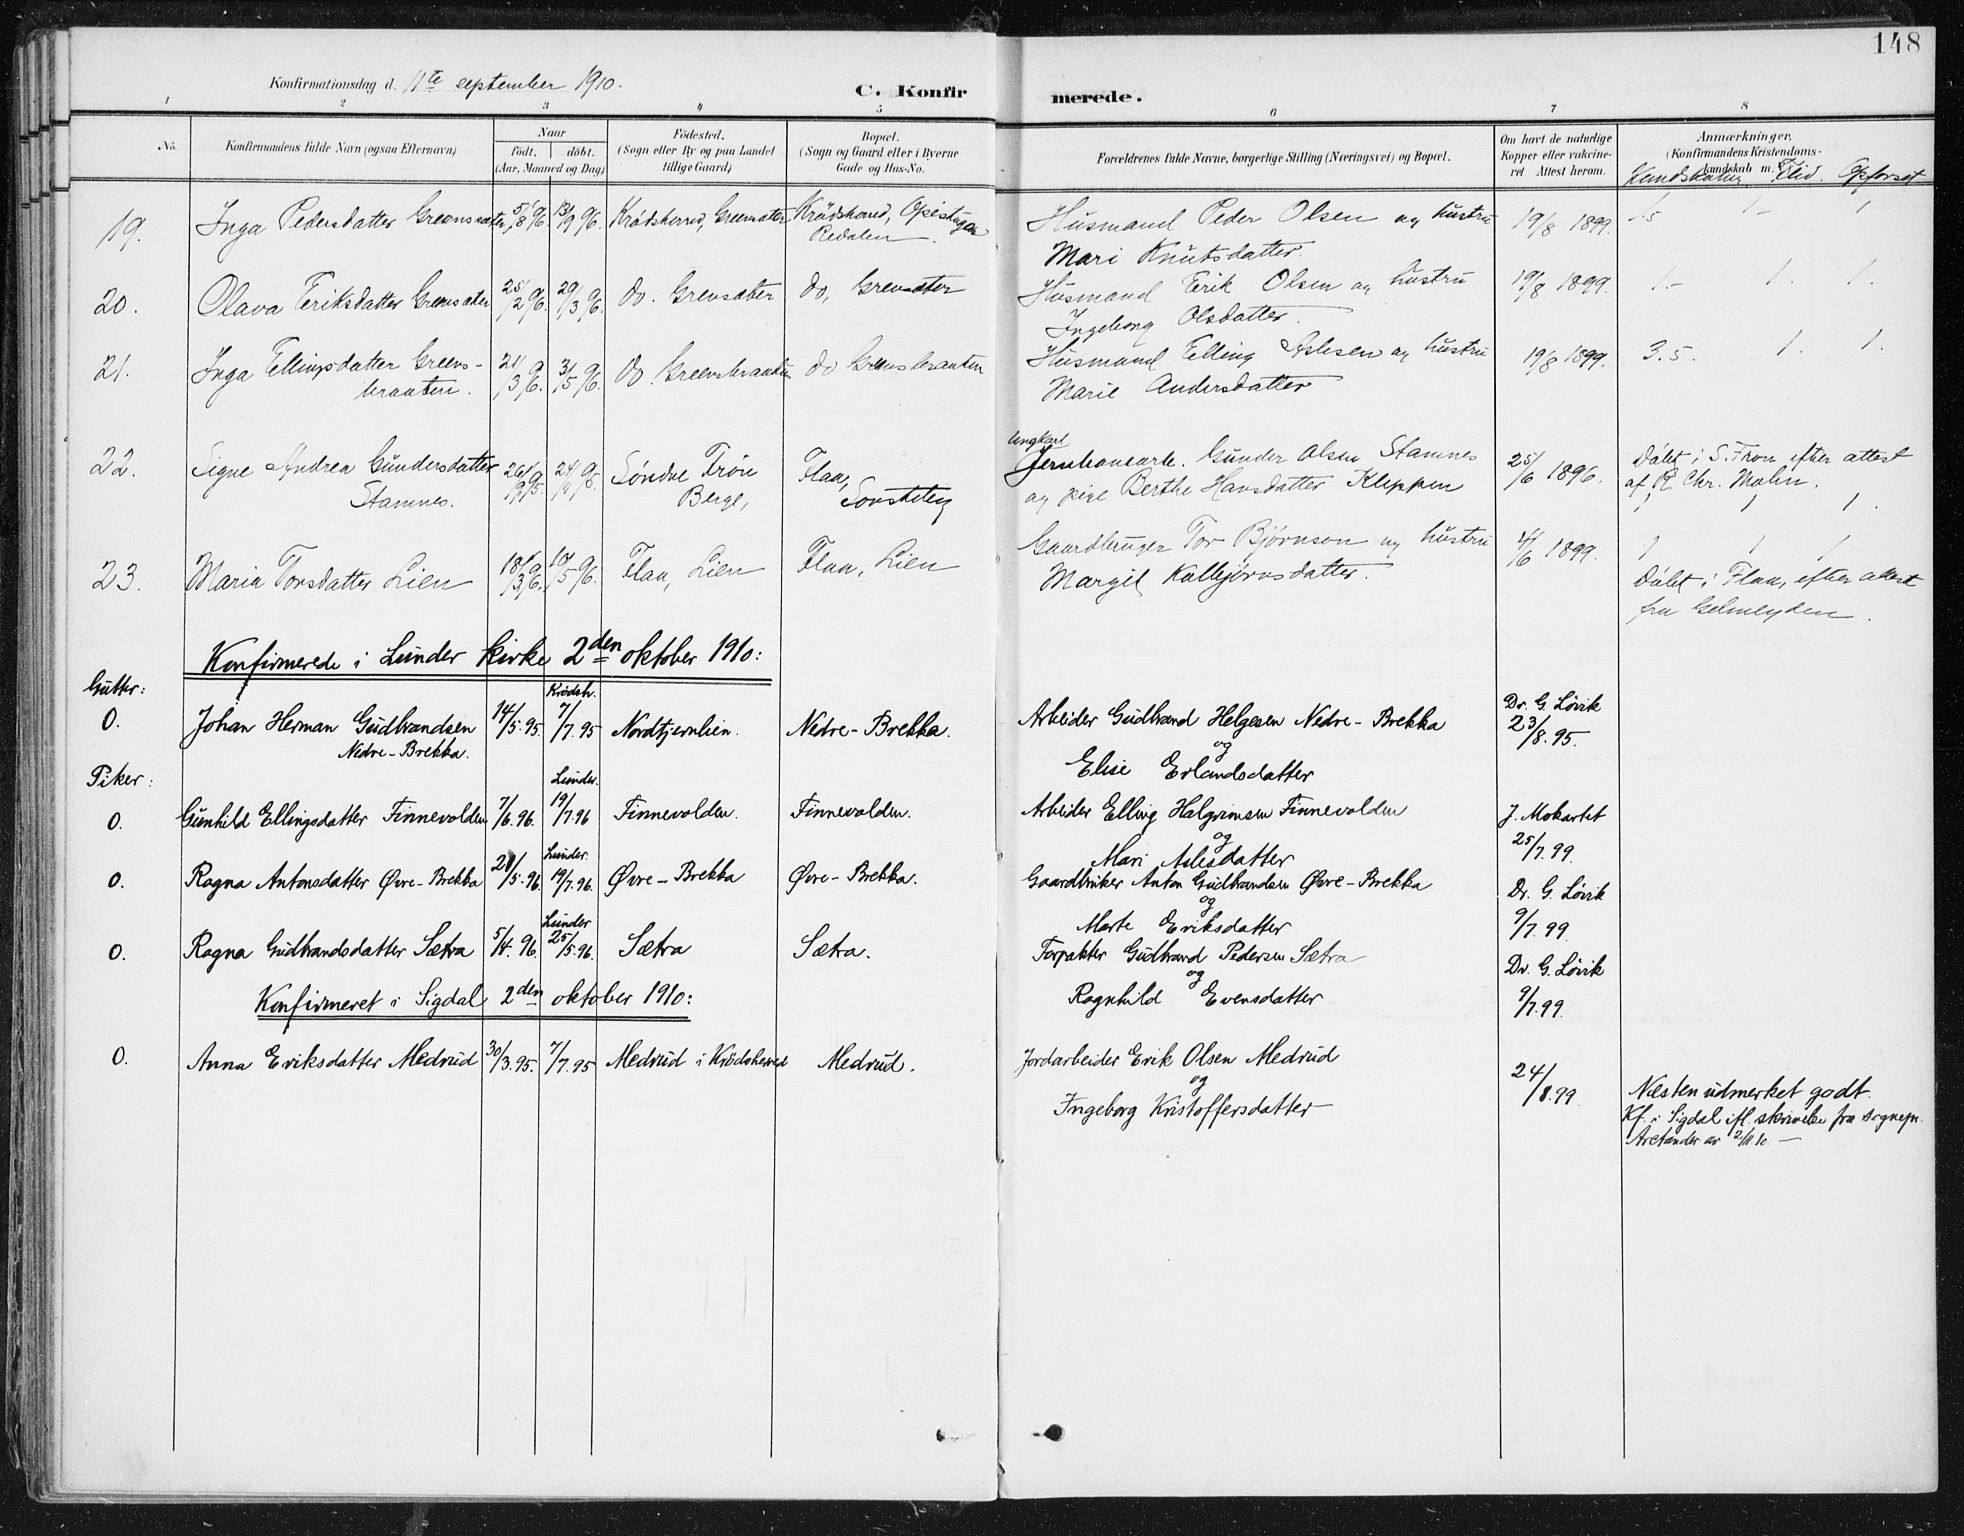 148
Konfirmationsdag d. 11te september 1910.
C. Konfirmerede.
1 2 3 4 5 6 7 8
No.
Konfirmandens fulde Navn (ogsaa Efternavn)
Naar
født. døbt.
(Aar, Maaned og Dag)
Fødested.
(Sogn eller By og paa Landet
tillige Gaard)
Bopæl.
(Sogn og Gaard eller i Byerne
Gade og Hus-No.
Forældrenes fulde Navne, borgerlige Stilling (Næringsvei) og Bopæl.
Om havt de naturlige
Kopper eller vakcine-
ret. Attest herom.
Anmærkninger.
(Konfirmandens Kristendoms-
kundskab m. m.)
Kundskaber Flid. Opførsel
19. Inga Pedersdatter Greensæter 5/8 96. 13/9 96. Krødsherred, Greensæter Krødsherred, Opistugen Husmand Peder Olsen og hustru 19/8 1899. 1.5 1- 1
Redalen Mari Knutsdatter.
20. Olava Eriksdatter Grensæter 25/2 96. 29/3 96. do. Grensæter do, Grensæter Husmand Erik Olsen og hustru 19/8 1899. 1.- 1. 1.
Ingeborg Olsdatter.
21. Inga Ellingsdatter Greens- 21/3 96. 31/5 96. do. Greensbraaten do Greensbraaten Husmand Elling Aslesen og hustru 19/8 1899. 3.5. 1. 1.
braaten. Marie Andersdatter
22. Signe Andrea Gundersdatter 26/9 95. 24/ 95 Søndre Frøn Flaa, Ungkarl Jernbanearb. Gunder Olsen Stamnes 25/6 1896. Døbt i S. Fron efter attest
Stamnes. Berge, og pige Berthe Hansdatter Kleppen af R. Chr. Malm.
1 1 1.
23. Maria Torsdatter Lien 18/3 96. 10/5 96. Flaa, Lien Flaa, Lien Gaardbruger Tor Bjørnson og hustru 4/6 1899. 1 1 1
Margit Kolbjørnsdatter. Døbt i Flaa, efter attest
fra
Konfirmerede i Lunder kirke 2den oktober 1910:
Gutter: Krødsh. Dr. G. Løvik
0. Johan Herman Gudbrandsen 14/5.95. 7/7.95 Nordtjernlien. Nedre-Brekka. Arbeider Gudbrand Helgesen Nedre-Brekka 23/8.95.
Nedre-Brekka. og
Elise Erlandsdatter
Piker: Lunder.
0. Gunhild Ellingsdatter Finnevolden 7/6.96. 19/7.96 Finnevolden. Finnevolden. Arbeider Elling Halgrimsen Finnevolden J. Mokartet
og
Mari Aslesdatter 25/7.99.
Lunder.
0. Ragna Antonsdatter Øvre-Brekka 21/5.96. 19/7.96. Øvre-Brekka Øvre-Brekka. Gaardbruker Anton Gudbrandsen Øvre-Brekka Dr. G. Løvik
og
Marte Eriksdatter 9/7.99.
Lunder
0. Ragna Gudbrandsdatter Sætra 5/4.96. 25/5.96. Sætra Sætra. Forpakter Gudbrand Pedersen Sætra Dr. G. Løvik
og
Ragnhild Evensdatter 9/7.99.
Konfirmeret i Sigdal 2den oktober 1910:
0. Anna Eriksdatter Medrud 30/3.95. 7/7.95 Medrud i Krødsherred Medrud. Jordarbeider Erik Olsen Medrud 24/8.99.
og
Ingeborg Kristoffersdatter Næsten udmerket godt.
Kf. i Sigdal ifl. skrivelse fra sognepr.
Arctander av 2/11 10. —